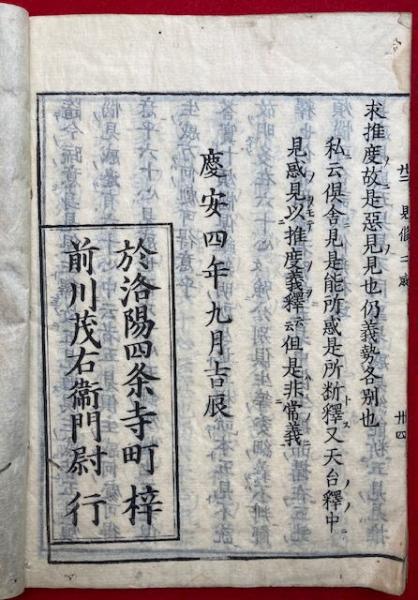 求推度故是惡見見也仍義勢各別也
私云俱舍見是能所惑是所断釋又天台釋中
見惑見以推度義釋云云但是非常義
慶安四年九月吉辰
於洛陽四条寺町 梓
前川茂右衛門尉 行
廿四